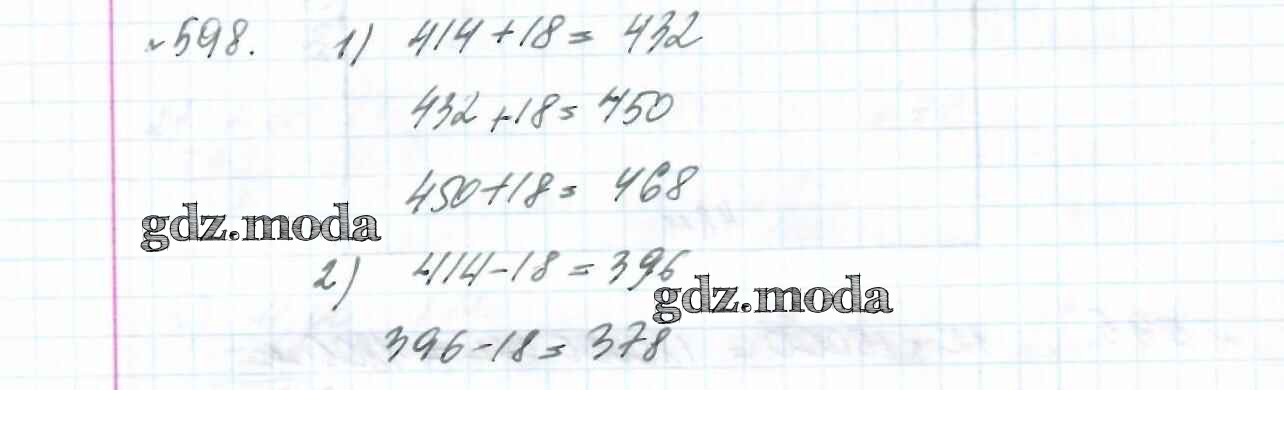 №598. 1) 414 + 18 = 432
432 + 18 = 450
450 + 18 = 468
gdz.moda
2) 414 - 18 = 396
gdz.moda
396 - 18 = 378